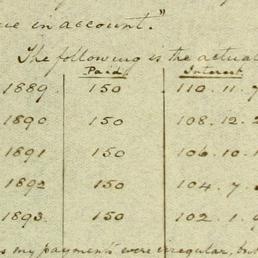 ue in account."
The following is the actual
Paid Interest
1889. 150 110. 11. 7
1890 150 108. 12. 2
1891 150 106. 10. 1
1892 150 104. 7.
1893. 150 102. 1. 9
s my payments were irregular, but